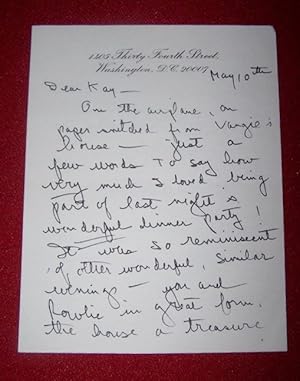 1305 Thirty Fourth Street,
Washington, D.C. 20007
May 10th
Dear Kay —
On the airplane, on
paper snitched from Vangie's
house — just a
few words to say how
very much I loved being
part of last night's
wonderful dinner party!
It was so reminiscent
of other wonderful, similar
evenings — you and
in great form,
the house a treasure